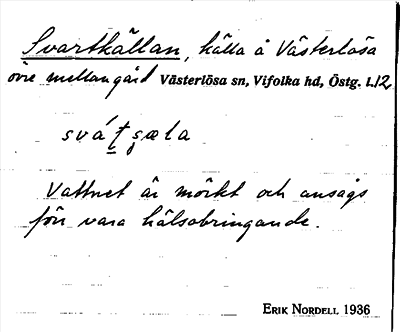 Svartkällan, källa å Västerlösa
övre mellangård Västerlösa sn, Vifolka hd, Östg. l.12
Vattnet är mörkt och ansågs
förr vara hälsobringande.
ERIK NORDELL 1936